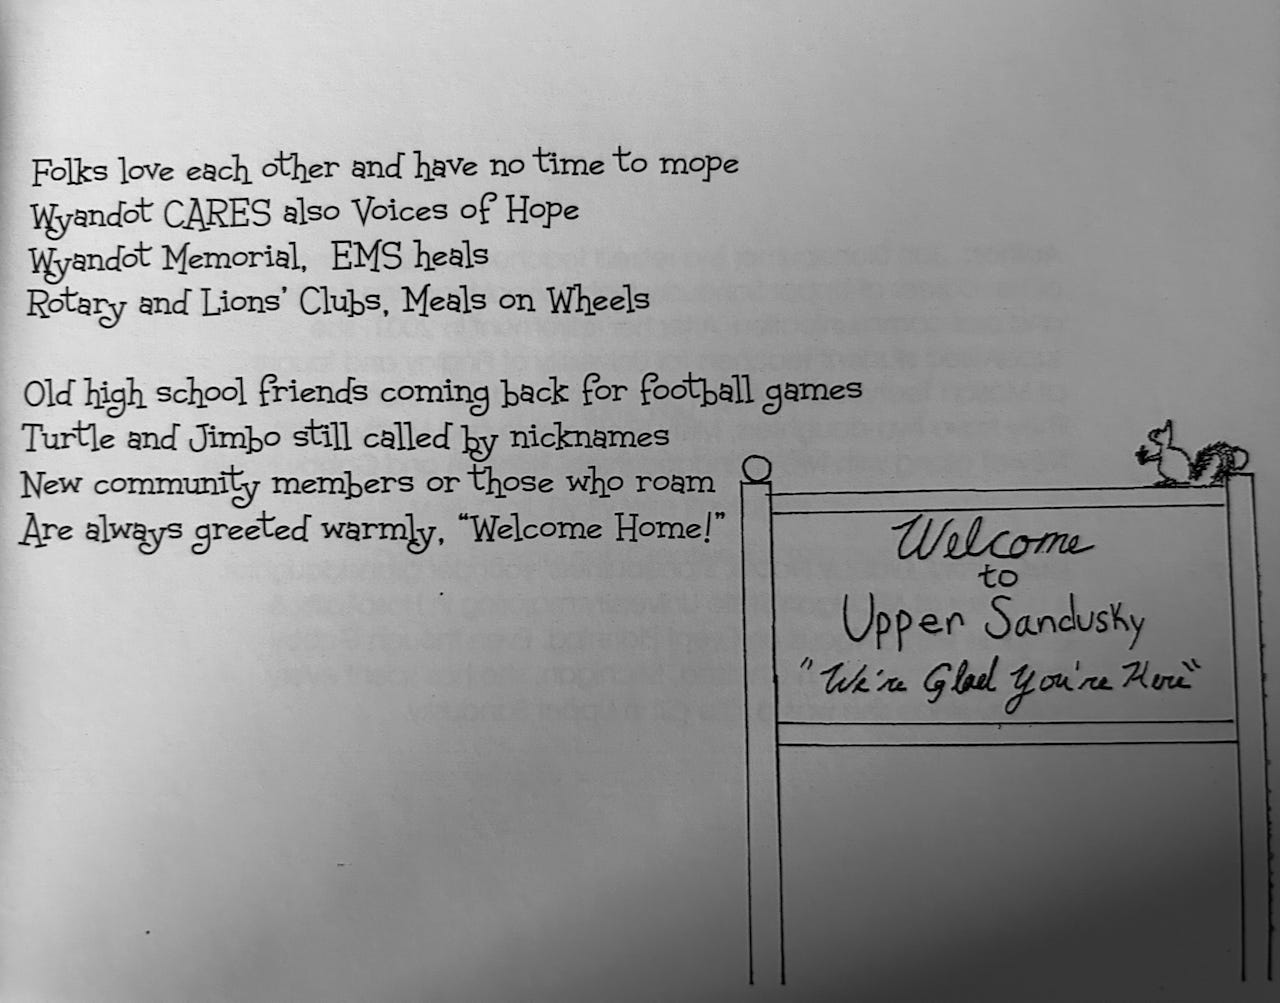 Folks love each other and have no time to mope
Wyandot CARES also Voices of Hope
Wyandot Memorial, EMS heals
Rotary and Lions' Clubs, Meals on Wheels
Old high school friends coming back for football games
Turtle and Jimbo still called by nicknames
New community members or those who roam
Are always greeted warmly, “Welcome Home!”
Welcome
to
Upper Sandusky
"We're Glad You're Here"